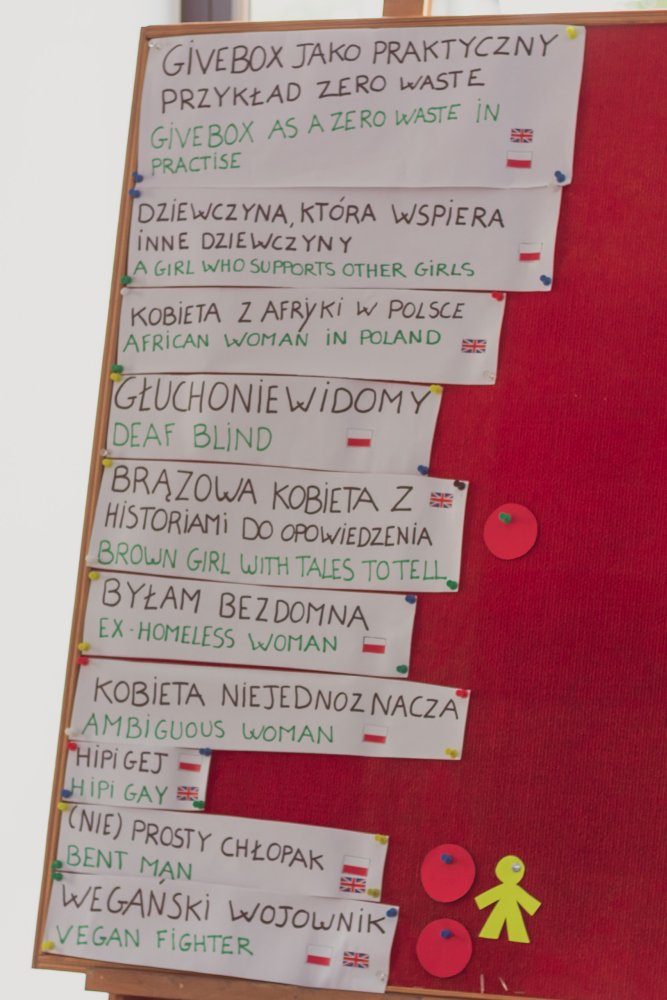 GIVEBOX JAKO PRAKTYCZNY
PRZYKŁAD ZERO WASTE
GIVEBOX AS A ZERO WASTE IN
PRACTISE
DZIEWCZYNA, KTÓRA WSPIERA
INNE DZIEWCZYNY
A GIRL WHO SUPPORTS OTHER GIRLS
KOBIETA Z AFRYKI W POLSCE
AFRICAN WOMAN IN POLAND
GŁUCHONIEWIDOMY
DEAF BLIND
BRĄZOWA KOBIETA Z
HISTORIAMI DO OPOWIEDZENIA
BROWN GIRL WITH TALES TO TELL
BYŁAM BEZDOMNA
EX-HOMELESS WOMAN
KOBIETA NIEJEDNOZNACZA
AMBIGUOUS WOMAN
HIPI GEJ
HIPI GAY
(NIE) PROSTY CHŁOPAK
BENT MAN
WEGAŃSKI WOJOWNIK
VEGAN FIGHTER